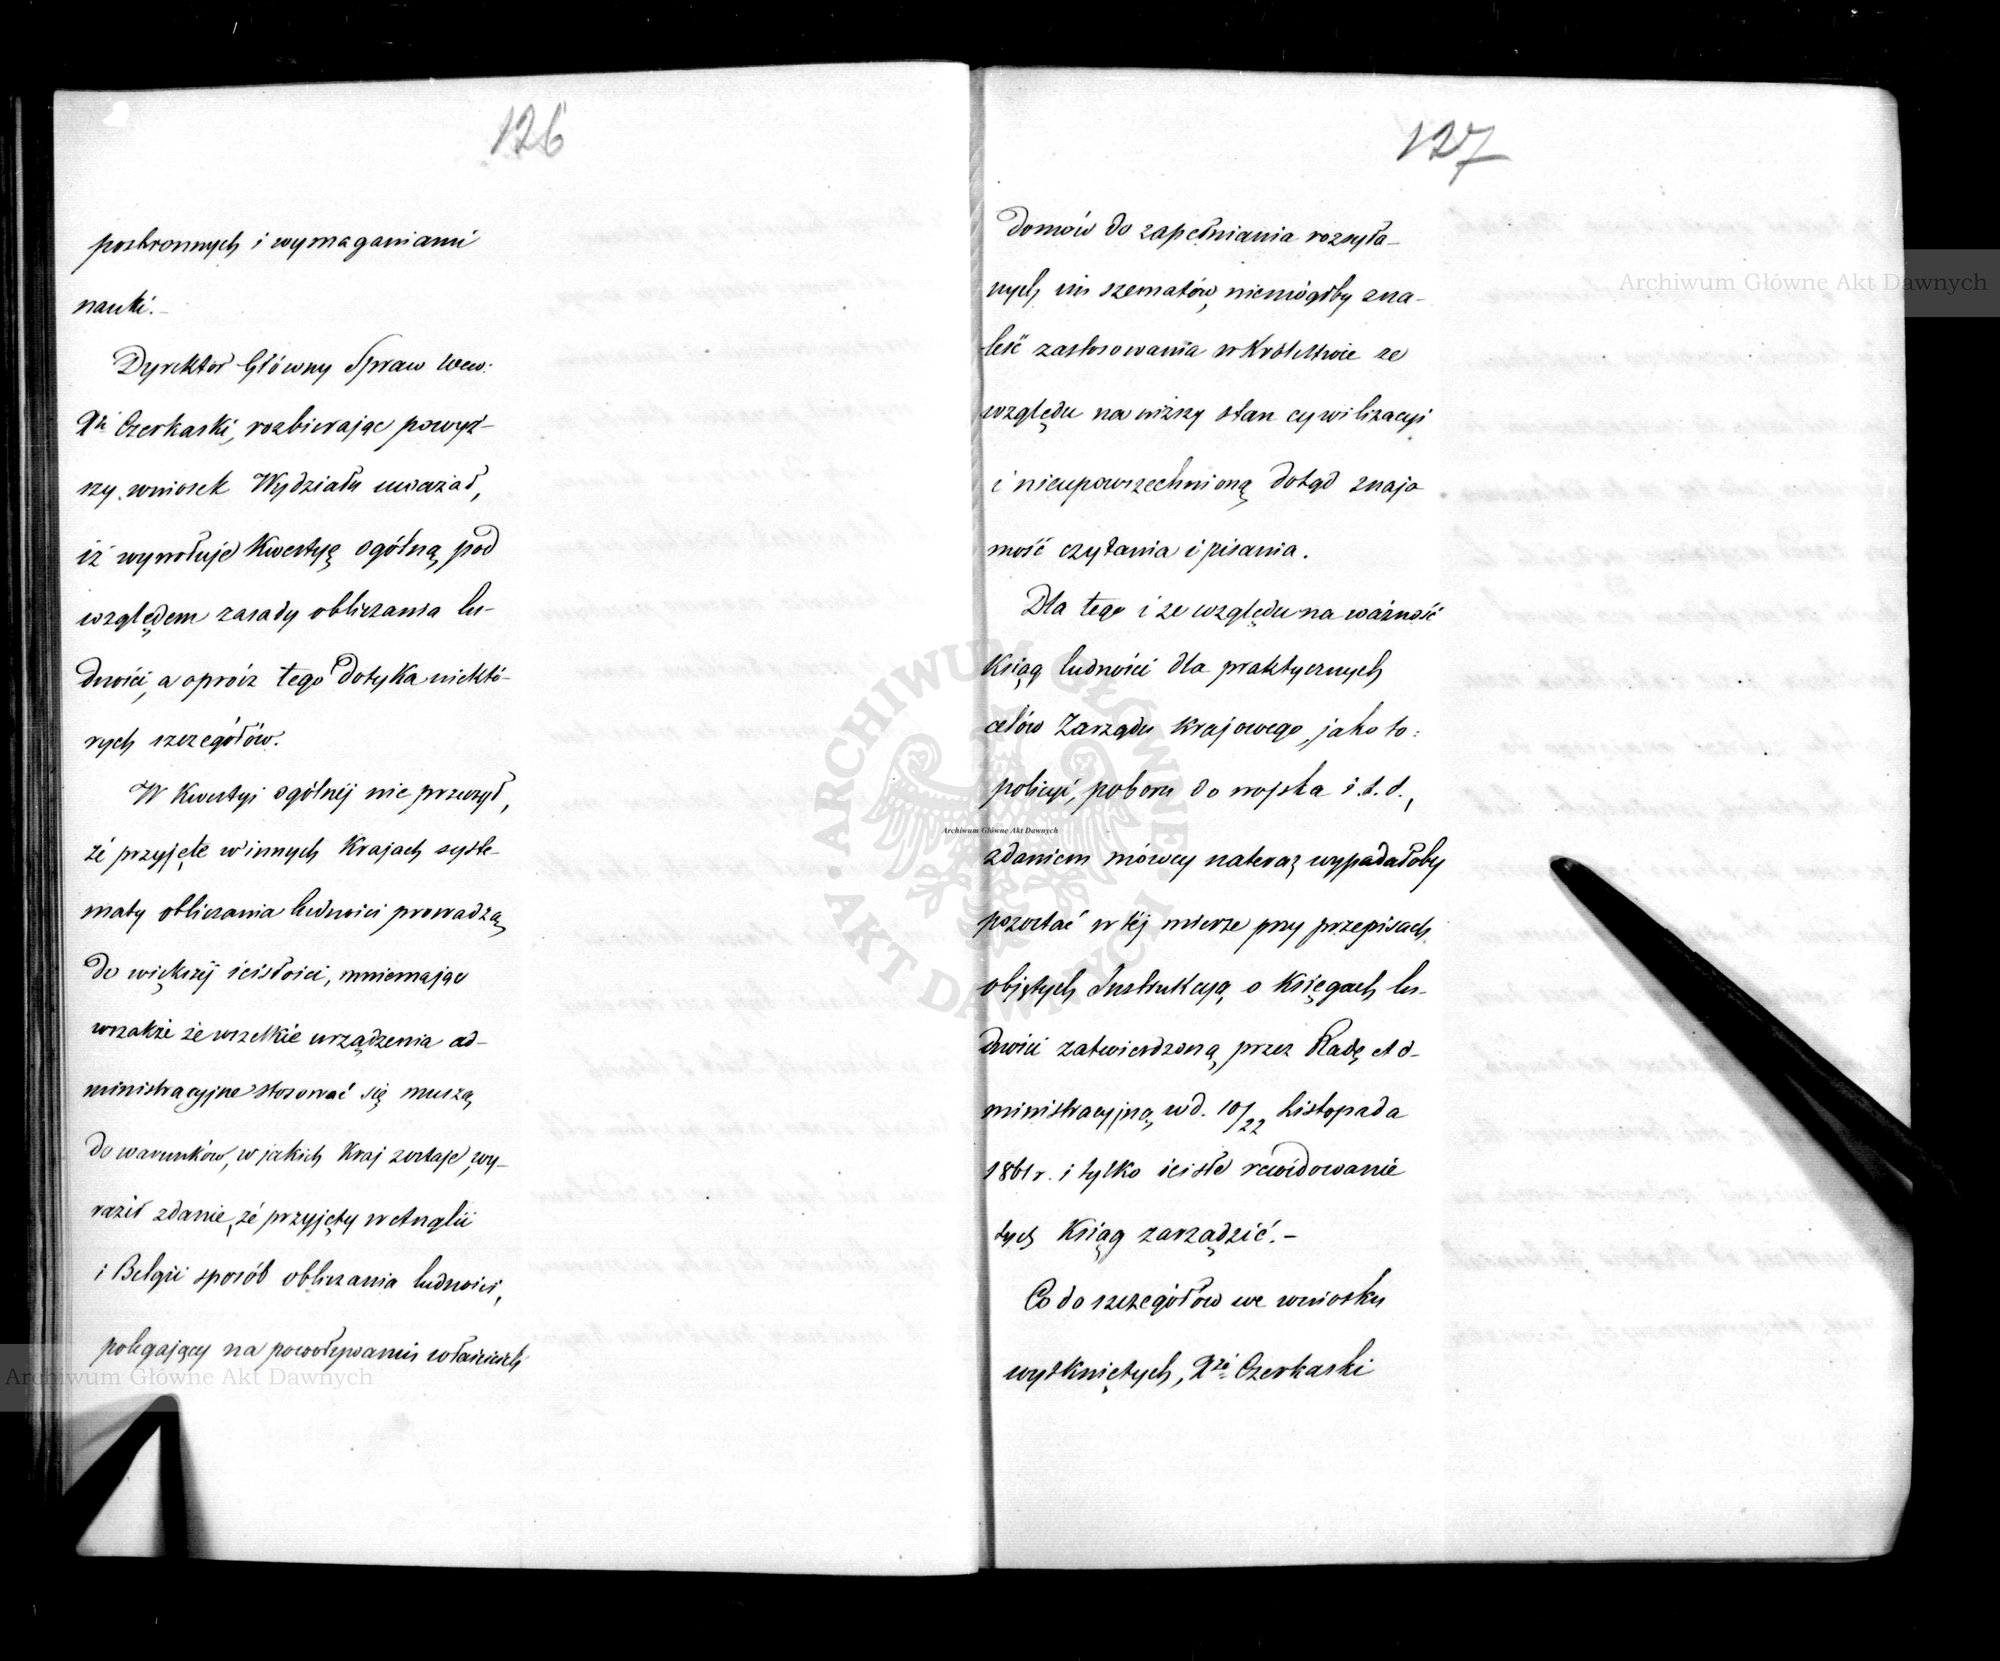 126
postronnych i wymaganiami
nauki.-
Dyrektor Główny Spraw Wew:
Czerkaski, rozbierając powyż-
szy wniosek Wydziału uważał,
iż wywołuje Kwestyę ogólną pod
względem zasady obliczania lu-
dności, a oprócz tego dotyka niektó-
rych szczegółów.
W Kwestyi ogólnej nie przeczył,
że przyjęte w innych Krajach syste-
maty obliczania ludności prowadzą
do większej ścisłości, mniemając
wszakże że wszelkie urządzenia ad-
ministracyjne stosować się muszą
do warunków, w jakich Kraj zostaje, wy-
raził zdanie, że przyjęty w Anglii
i Belgii sposób obliczania ludności,
polegający na powoływaniu właścicieli
127
domów do zapełniania rozsyła-
nych im szematów, niemógłby zna-
leść zastosowania w Królestwie ze
względu na niższy stan cywilizacyi
i nieupowszechnioną dotąd znajo
mość czytania i pisania.
Dla tego i ze względu na ważność
Ksiąg ludności dla praktycznych
celów Zarządu Krajowego, jako to:
policyi, poboru do wojska i.t.d.,
zdaniem mówcy nateraz wypadałoby
pozostać w tej mierze przy przepisach
objętych Instrukcyą o Księgach lu-
dności zatwierdzoną przez Radę Ad-
ministracyjną w d. 10/22 Listopada
1861 r. i tylko ścisłe rewidowanie
tych Ksiąg zarządzić.-
Co do szczegółów we wniosku
wytkniętych, Czerkaski
Archiwum Główne Akt Dawnych
Archiwum Główne Akt Dawnych
Archiwum Główne Akt Dawnych
ARCHIWUM GŁÓWNE AKT DAWNYCH